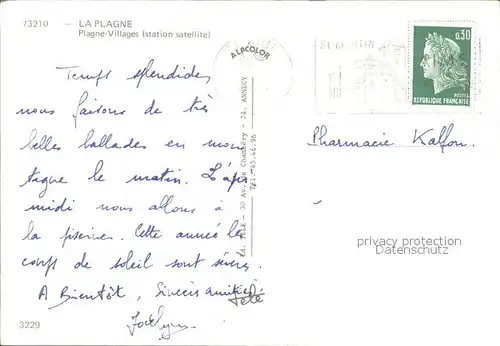 73210 - LA PLAGNE
Plagne-Villages (station satellite)
ALPCOLOR
0,30
POSTES
REPUBLIQUE FRANÇAISE
Temps splendides
nous faisons de très
belles ballades en mon
tagne le matin. L'après
midi nous allons à
la piscine. Cette année les
coups de soleil sont sévères.
A Bientôt, sincères amitiés
Jocelyne
Pharmacie Kalfon.
privacy protection
Datenschutz
30 Av. de Chambéry - 74. ANNECY
Tél. 45.46.96
3229